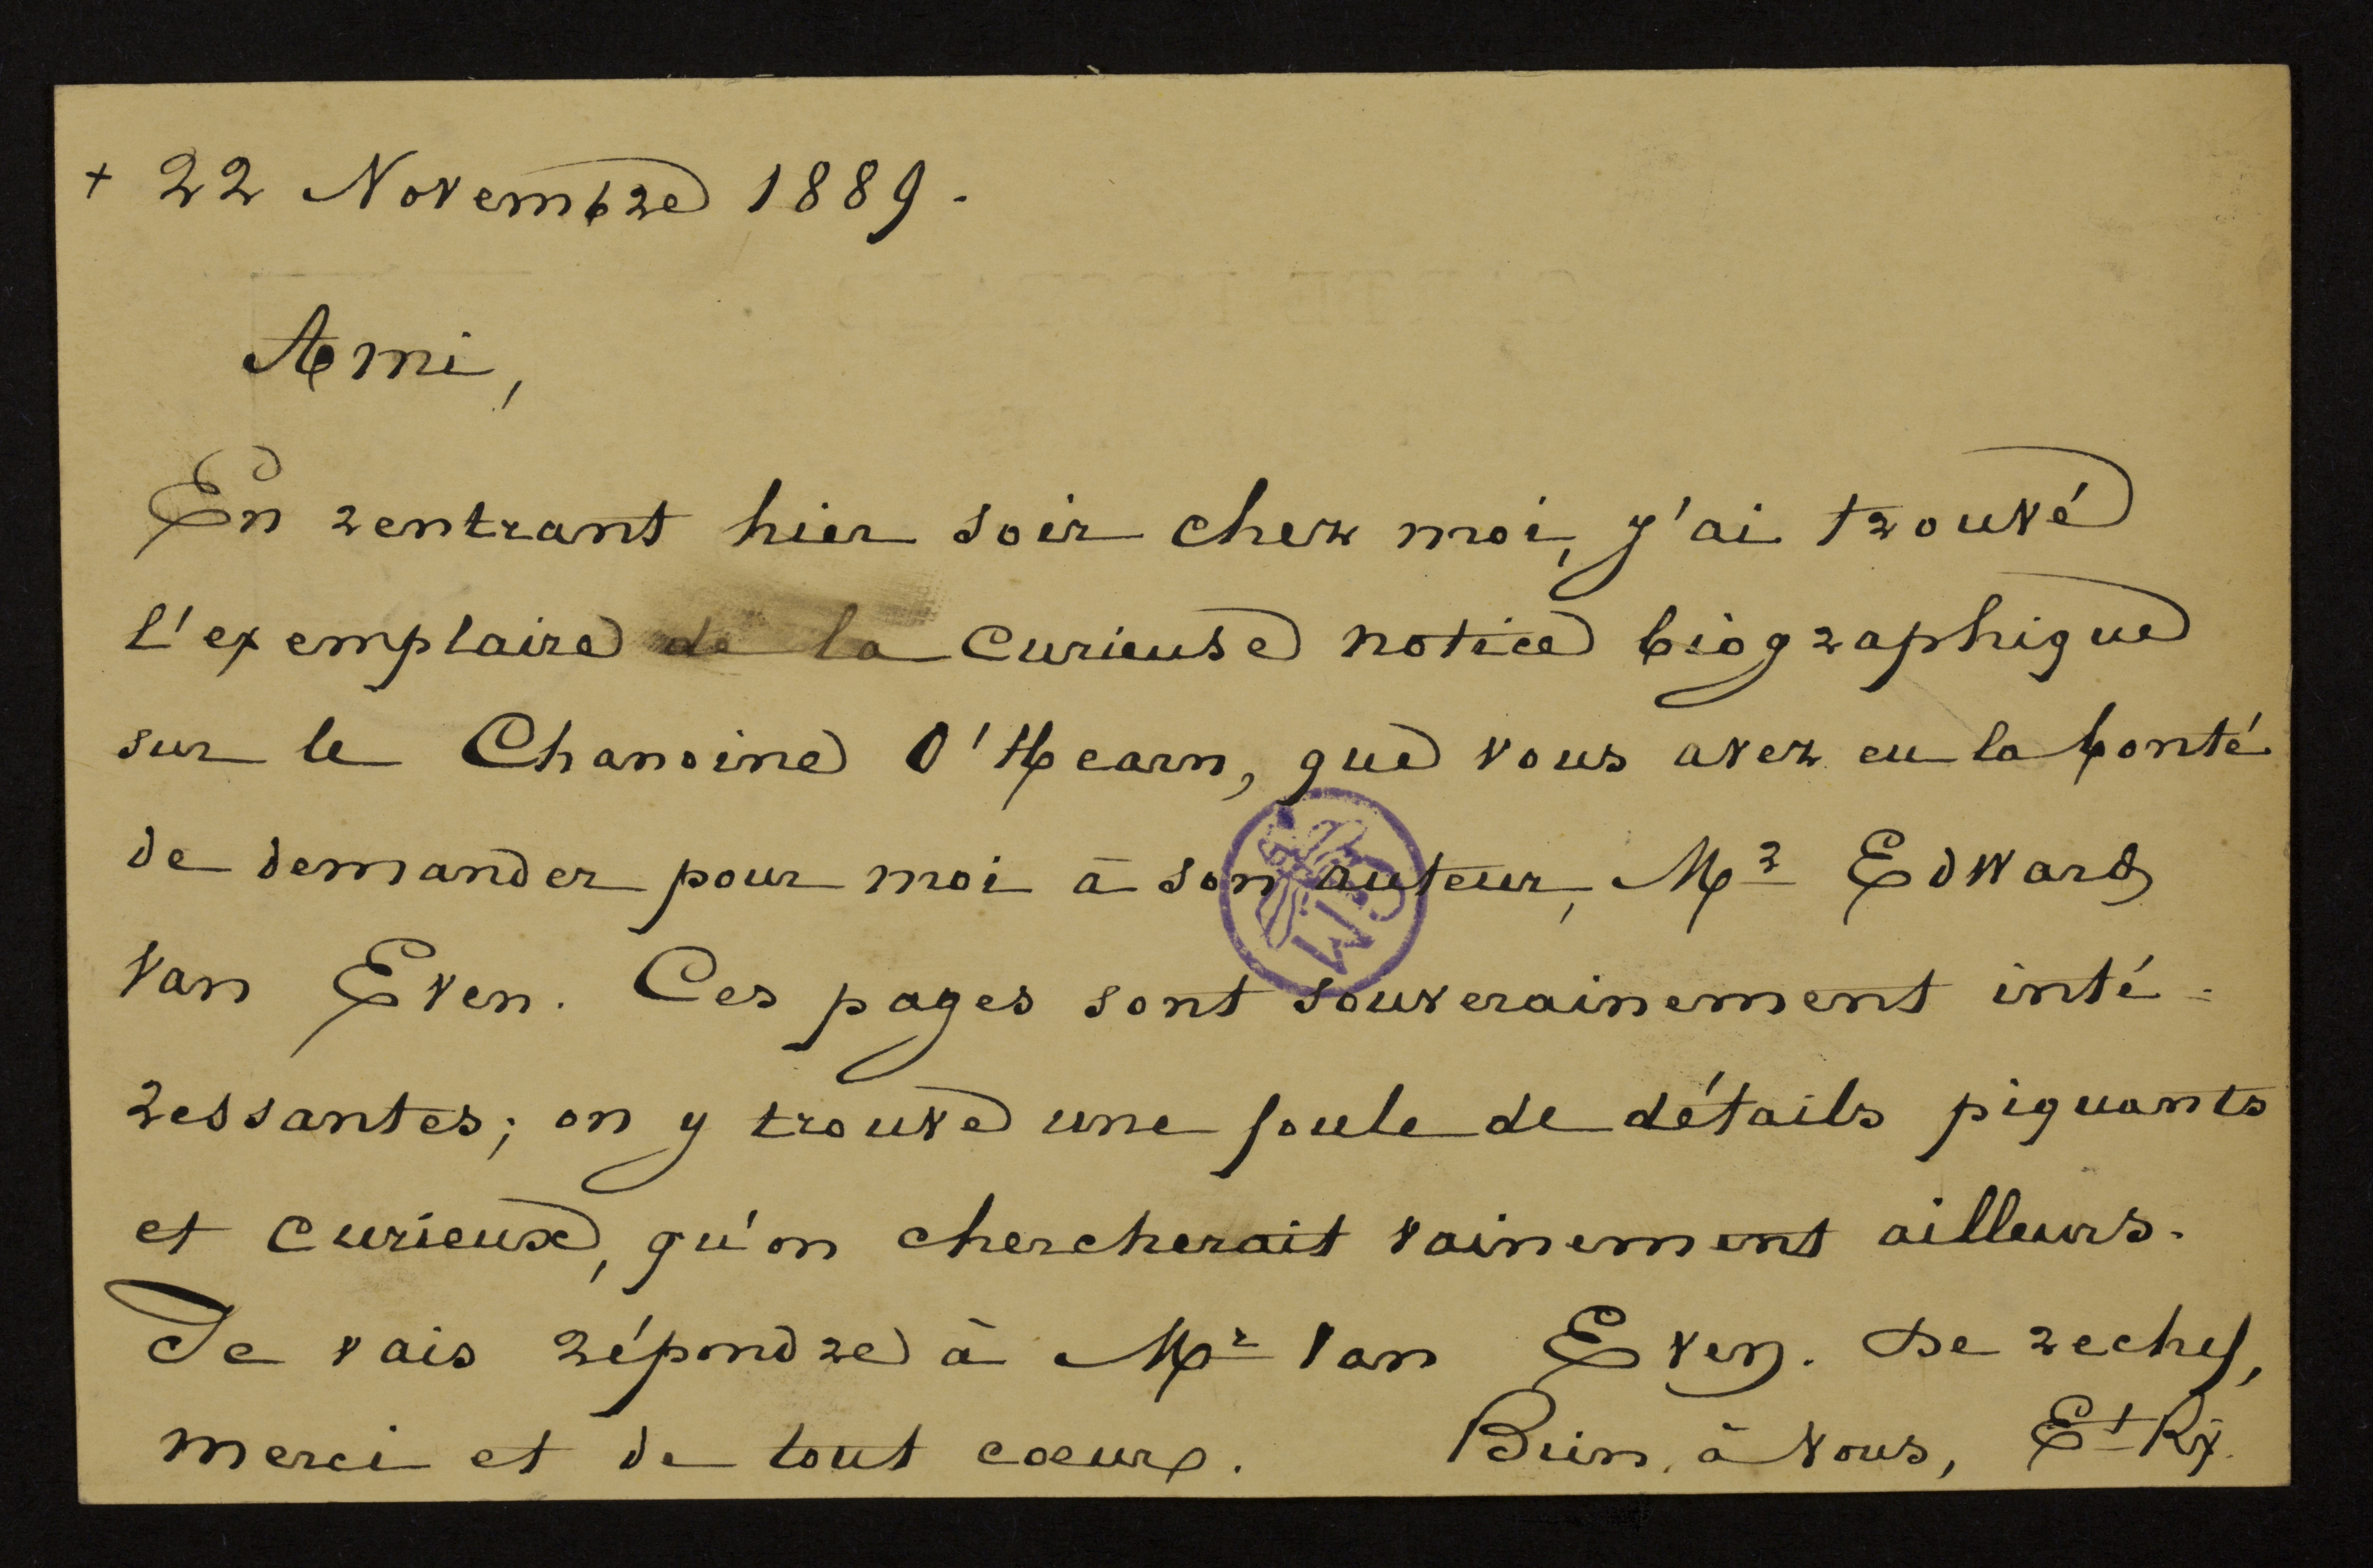 + 22 Novembre 1889.
Ami,
En rentrant hier soir chez moi, j'ai trouvé
l'exemplaire de la curieuse notice biographique
sur le Chanoine O'Hearn, que vous avez eu la bonté
de demander pour moi à son auteur, Mr Edward
Van Even. Ces pages sont souverainement inté-
ressantes; on y trouve une foule de détails piquants
et curieux, qu'on chercherait vainement ailleurs.
Je vais répondre à Mr Van Even. De rechef,
merci et de tout coeur. Bien à vous, Et Rx.